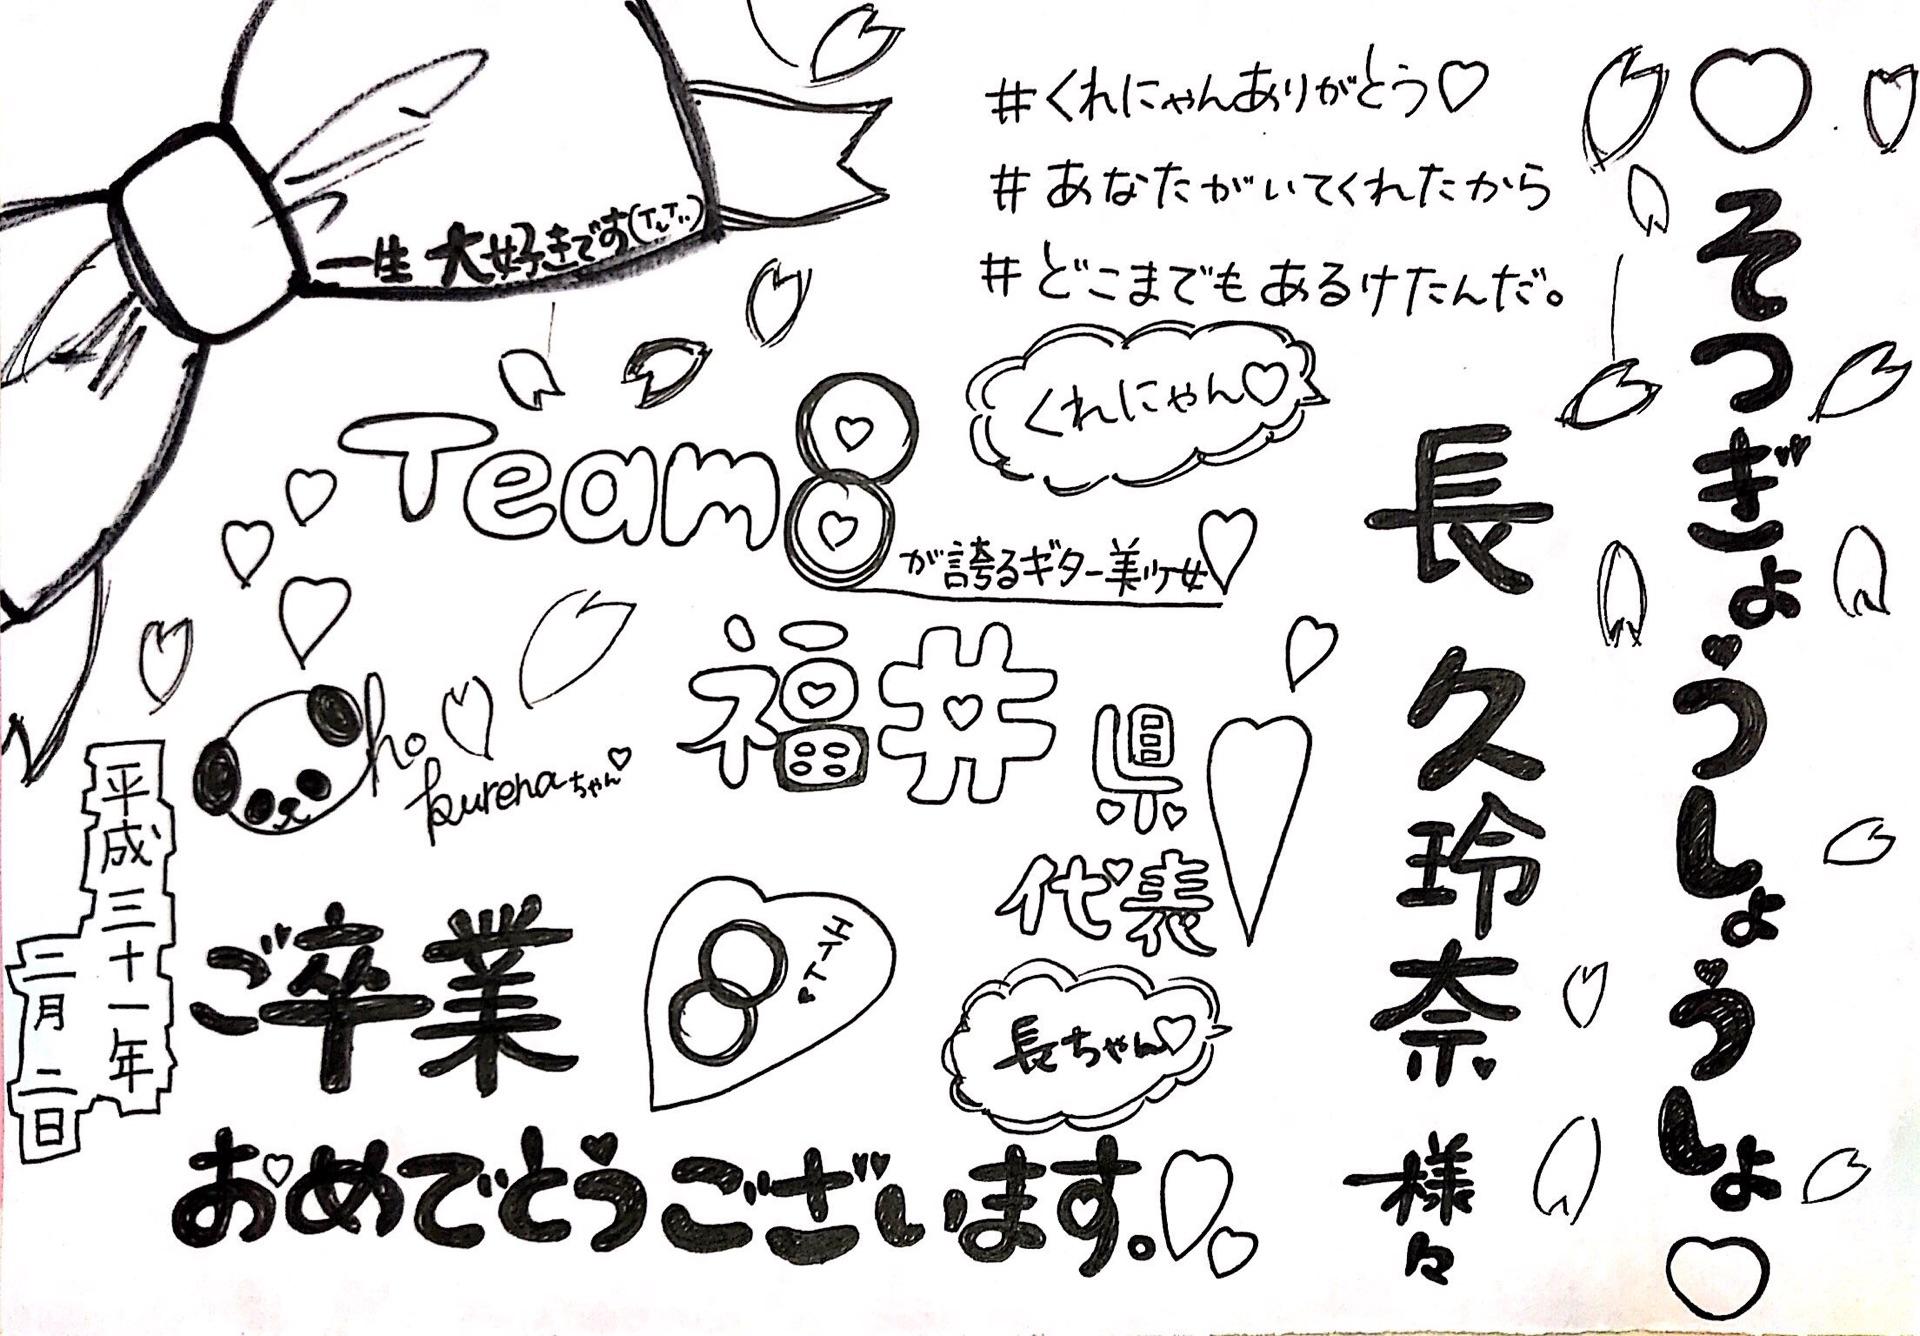 ♡そつぎょうしょうしょ♡
長 久玲奈 様々
#くれにゃんありがとう♡
#あなたがいてくれたから
#どこまでもあるけたんだ。
一生 大好きです
くれにゃん♡
Team8
が誇るギター美少女♡
福井県
代表
cho
kurenaちゃん♡
平成三十一年
三月二日
ご卒業
エイト♥
長ちゃん♡
おめでとうございます。